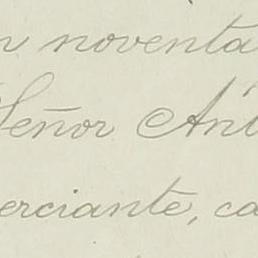 n noventa
Señor Ant
erciante, ca